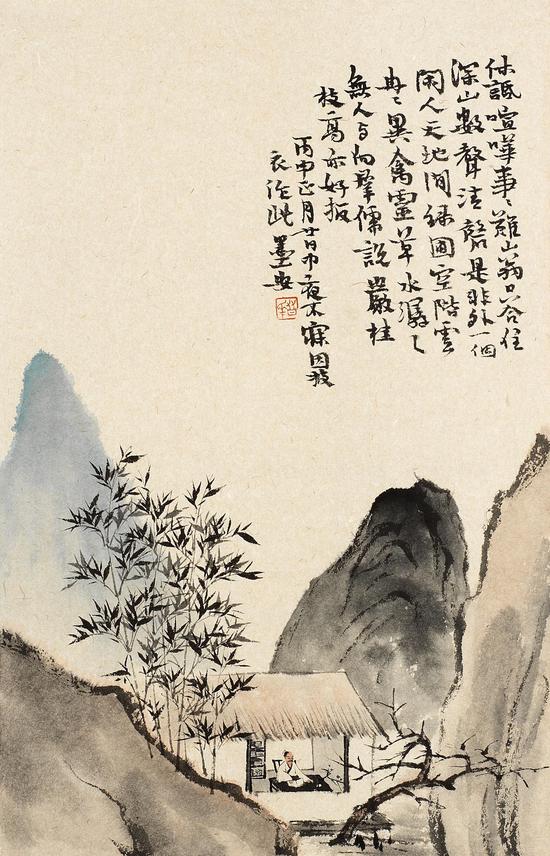 休詆喧嘩事々難山翁只合住
深山數聲清磬是非外一個
閑人天地間綠圃空階雲
冉々異禽靈草水潺々
無人与向群儒說巖桂
枝高亦好扳
丙申正月廿日中夜不寐因披
衣作此墨